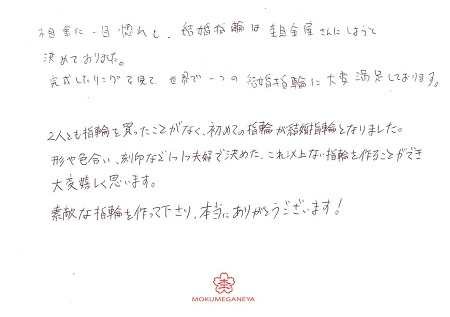 杢目金に一目惚れし、結婚指輪は杢目金屋さんにしようと
決めておりました。
完成したリングを見て世界で一つの結婚指輪に大変満足しております。
2人とも指輪を買ったことがなく、初めての指輪が結婚指輪となりました。
形や色合い、刻印など1つ1つ夫婦で決めた、これ以上ない指輪を作ることができ
大変嬉しく思います。
素敵な指輪を作って下さり、本当にありがとうございます!
MOKUMEGANEYA